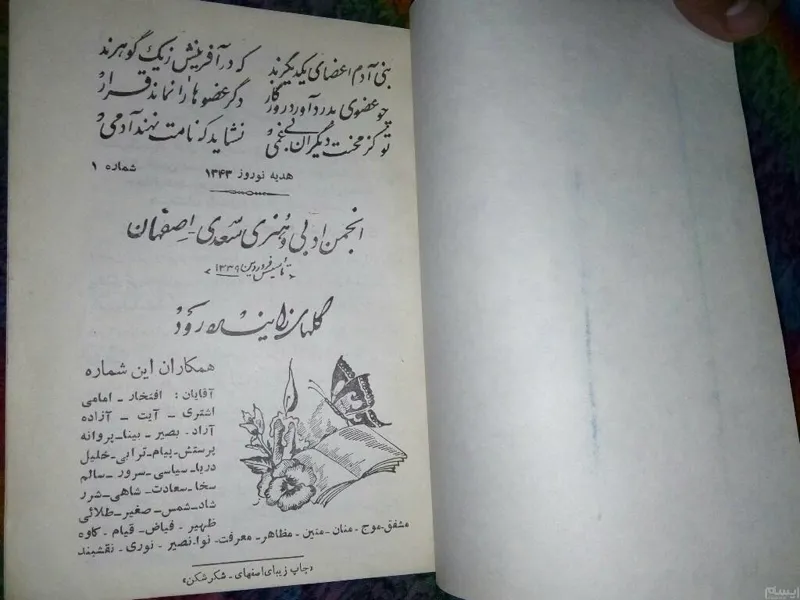 بنی آدم اعضای یکدیگرند که در آفرینش ز یک گوهرند
چو عضوی بدرد آورد روزگار دگر عضوها را نماند قرار
تو کز محنت دیگران بی‌غمی نشاید که نامت نهند آدمی
هدیه نوروز ۱۳۴۳ شماره ۱
انجمن ادبی و هنری سعدی - اصفهان
« تأسیس فروردین ۱۳۳۹ »
گلهای زاینده رود
همکاران این شماره
آقایان : افتخار - امامی
اشتری - آیت - آزاده
آراد - بصیر - بینا - پروانه
پرستش - پیام - ترابی - خلیل
دریا - سیاسی - سرور - سالم
سخا - سعادت - شاهی - شرر
شاد - شمس - صغیر - طلائی
ظهیر - فیاض - قیام - کاوه
مشفق - موج - منان - متین - مظاهر - معرفت - نوا - نصیر - نوری - نقشبند
«چاپ زیبای اصفهان - شکرشکن»
ایسام